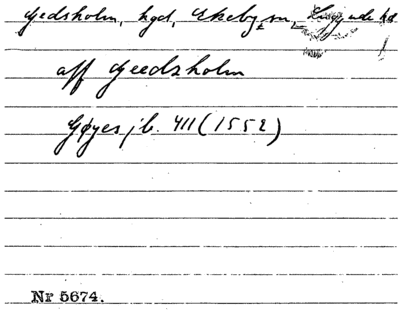 Gedsholm, hgd, Ekeby sn, Luggude hd.
aff Geedzholm
Gøyes jb. 411 (1552)
Nr 5674.